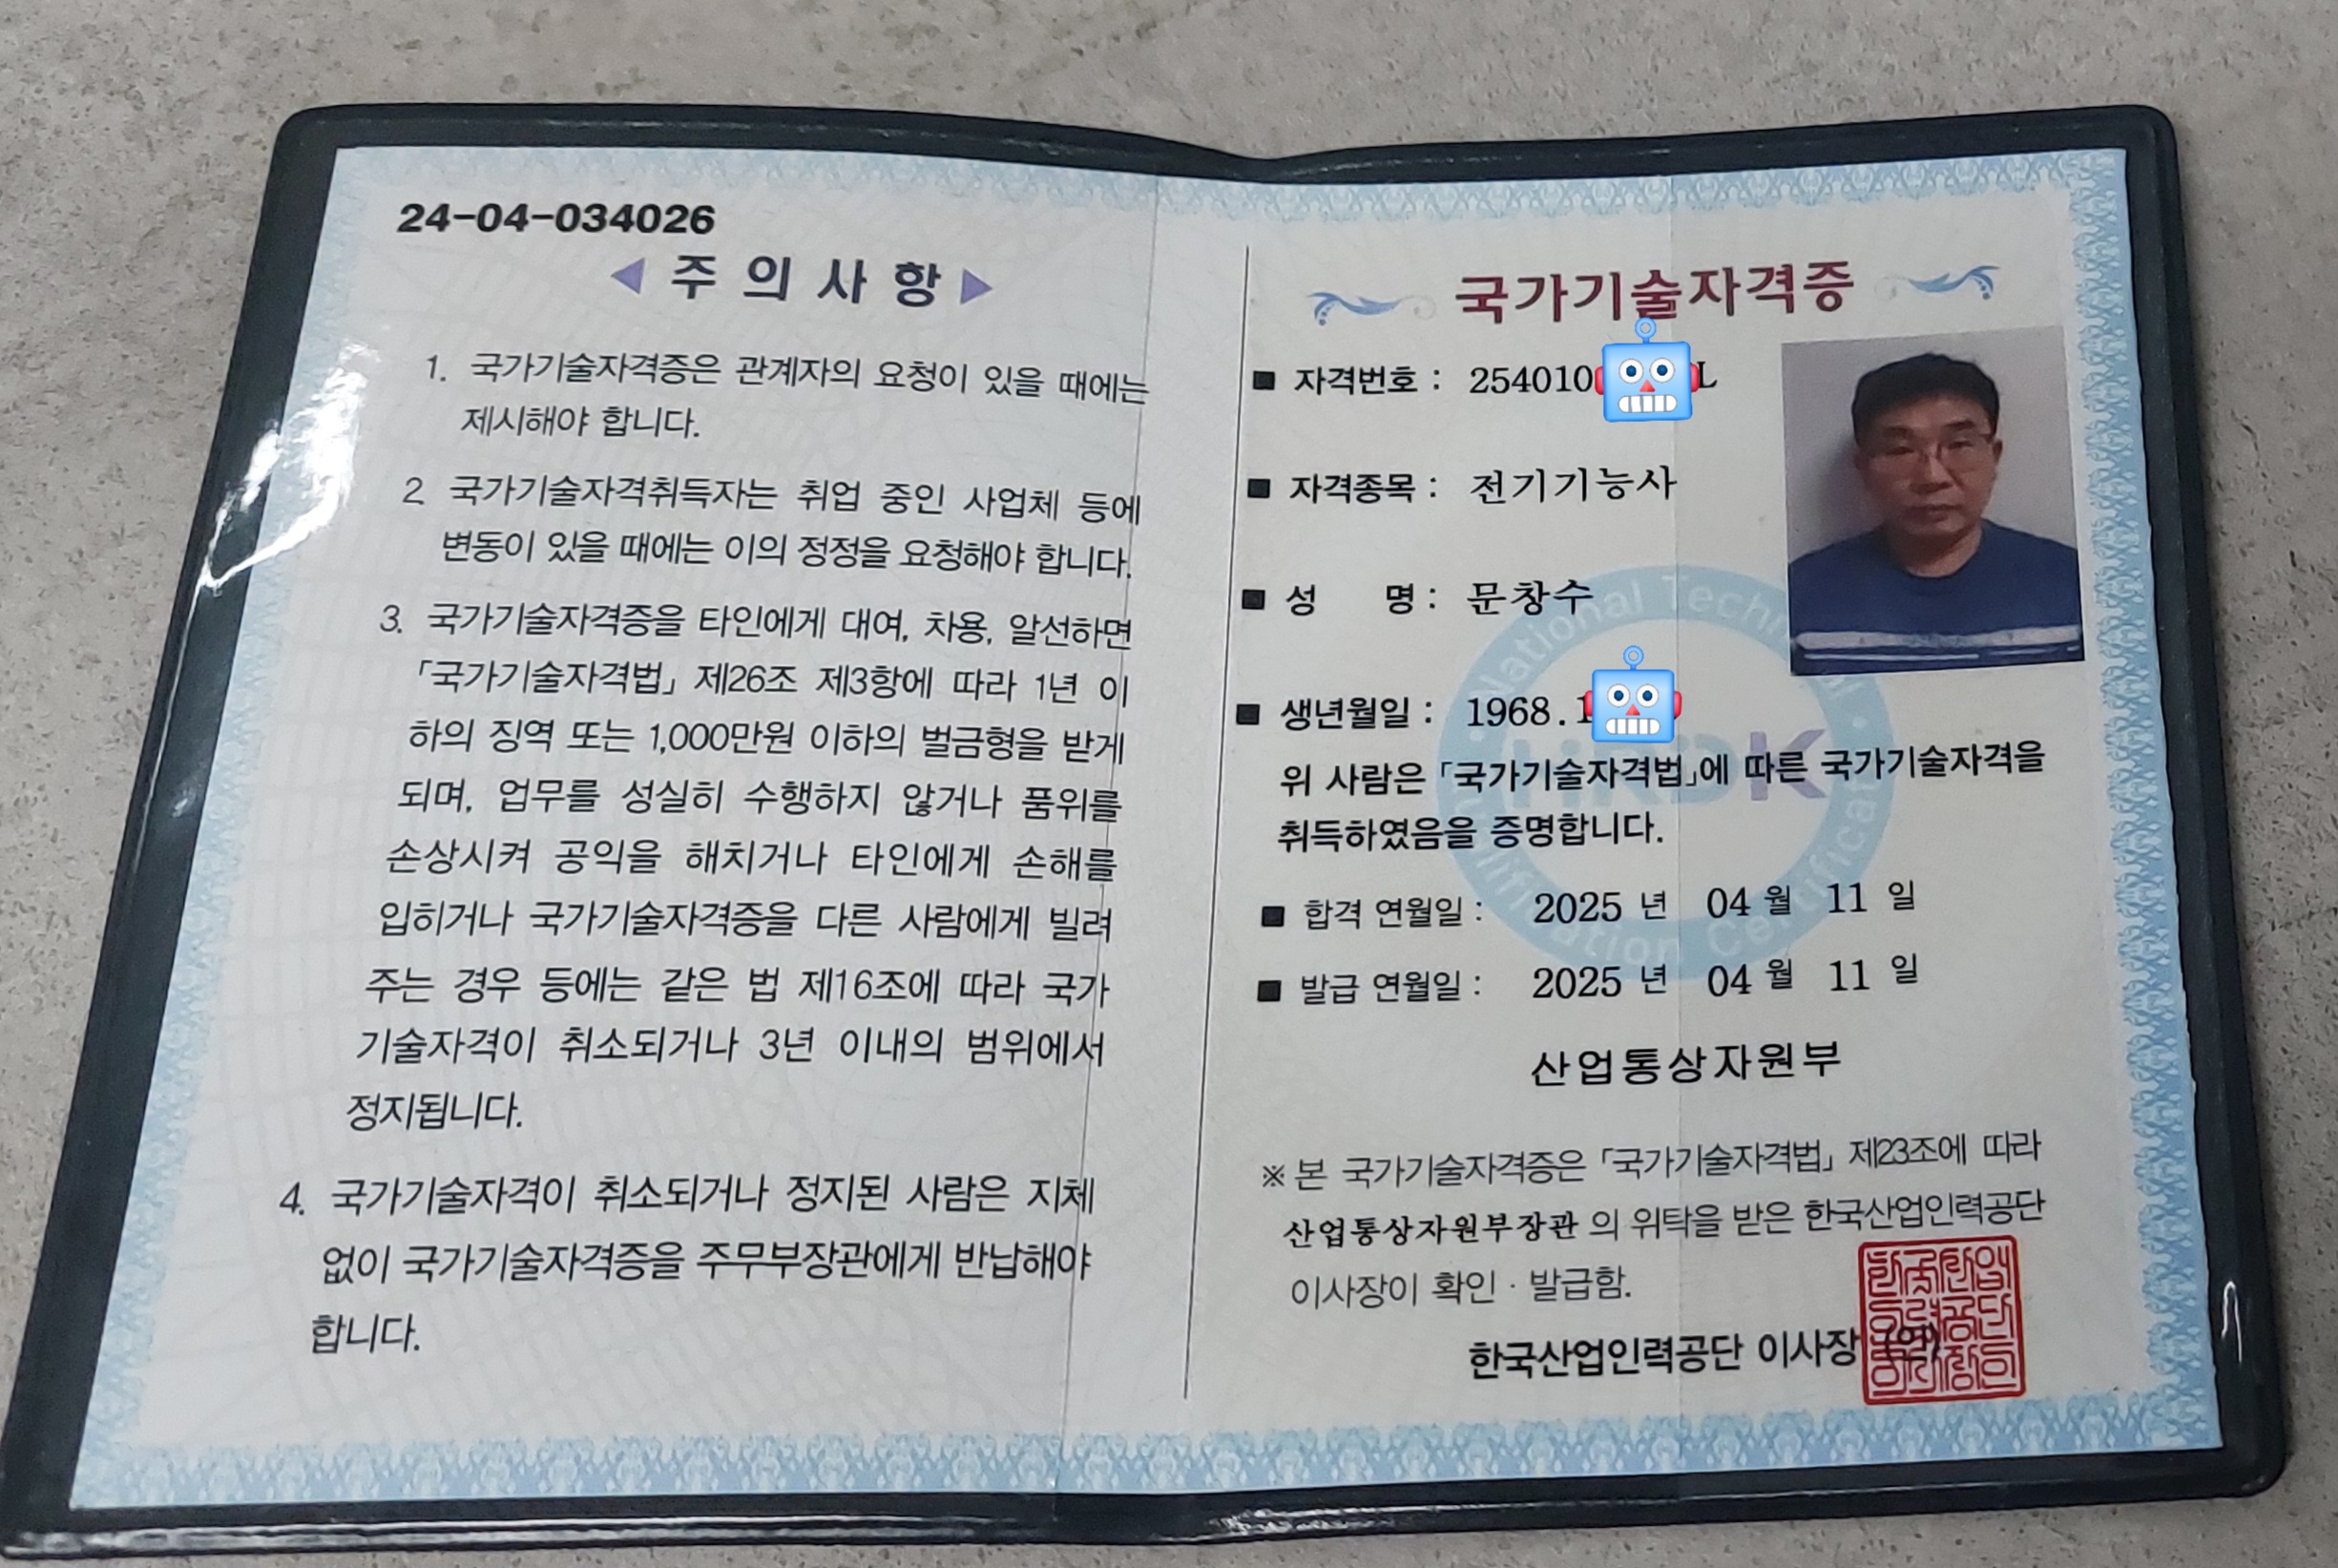 24-04-034026
◀ 주 의 사 항 ▶
1. 국가기술자격증은 관계자의 요청이 있을 때에는
제시해야 합니다.
2. 국가기술자격취득자는 취업 중인 사업체 등에
변동이 있을 때에는 이의 정정을 요청해야 합니다.
3. 국가기술자격증을 타인에게 대여, 차용, 알선하면
「국가기술자격법」 제26조 제3항에 따라 1년 이
하의 징역 또는 1,000만원 이하의 벌금형을 받게
되며, 업무를 성실히 수행하지 않거나 품위를
손상시켜 공익을 해치거나 타인에게 손해를
입히거나 국가기술자격증을 다른 사람에게 빌려
주는 경우 등에는 같은 법 제16조에 따라 국가
기술자격이 취소되거나 3년 이내의 범위에서
정지됩니다.
4. 국가기술자격이 취소되거나 정지된 사람은 지체
없이 국가기술자격증을 주무부장관에게 반납해야
합니다.
국가기술자격증
■ 자격번호 : 254010 L
■ 자격종목 : 전기기능사
■ 성 명 : 문창수
■ 생년월일 : 1968.1
위 사람은 「국가기술자격법」에 따른 국가기술자격을
취득하였음을 증명합니다.
■ 합격 연월일 : 2025 년 04 월 11 일
■ 발급 연월일 : 2025 년 04 월 11 일
산업통상자원부
※ 본 국가기술자격증은 「국가기술자격법」 제23조에 따라
산업통상자원부장관 의 위탁을 받은 한국산업인력공단
이사장이 확인 · 발급함.
한국산업인력공단 이사장 (인)
National Technical Qualification Certificate
HRDK